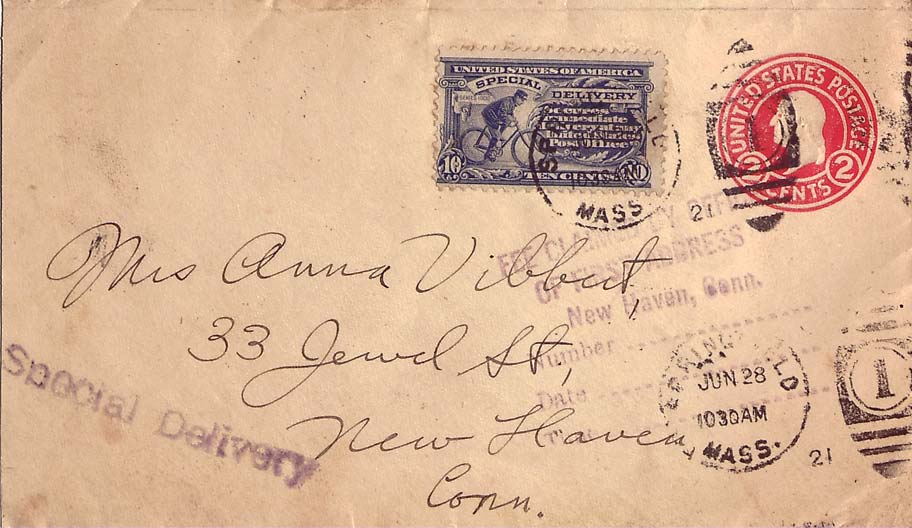 UNITED STATES OF AMERICA
SPECIAL DELIVERY
SERIES 1902
Secures
immediate
Delivery at any
United States
Post Office
10 TEN CENTS 10
MASS
21
UNITED STATES POSTAGE
2 CENTS 2
FEE CLAIMED BY OFFICE
OF FIRST ADDRESS
New Haven, Conn.
Number
Date
Mrs Anna Vibbert,
33 Jewel St,
New Haven,
Conn.
Special Delivery
SPRINGFIELD
JUN 28
1030AM
MASS.
21
1